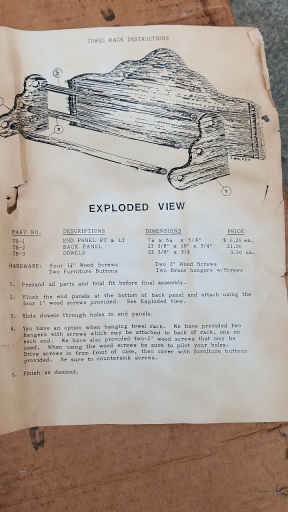 TOWEL RACK INSTRUCTIONS
EXPLODED VIEW
PART NO. DESCRIPTIONS DIMENSIONS PRICE
TR-1 END PANEL RT & LT
TR-2 BACK PANEL
TR-3 DOWELS
HARDWARE: Four 1¼" Wood Screws Two 2" Wood Screws
Two Furniture Buttons Two Brass hangers w/Screws
1. Presand all parts and trial fit before final assembly.
2. Flush the end panels at the bottom of back panel and attach using the
four 1" wood screws provided. See Exploded View.
3. Slide dowels through holes in end panels.
4. You have an option when hanging towel rack. We have provided two
hangers with screws which may be attached to back of rack, one on
each end. We have also provided two-2" wood screws that may be
used. When using the wood screws be sure to pilot your holes.
Drive screws in from front of case, then cover with furniture buttons
provided. Be sure to countersink screws.
5. Finish as desired.